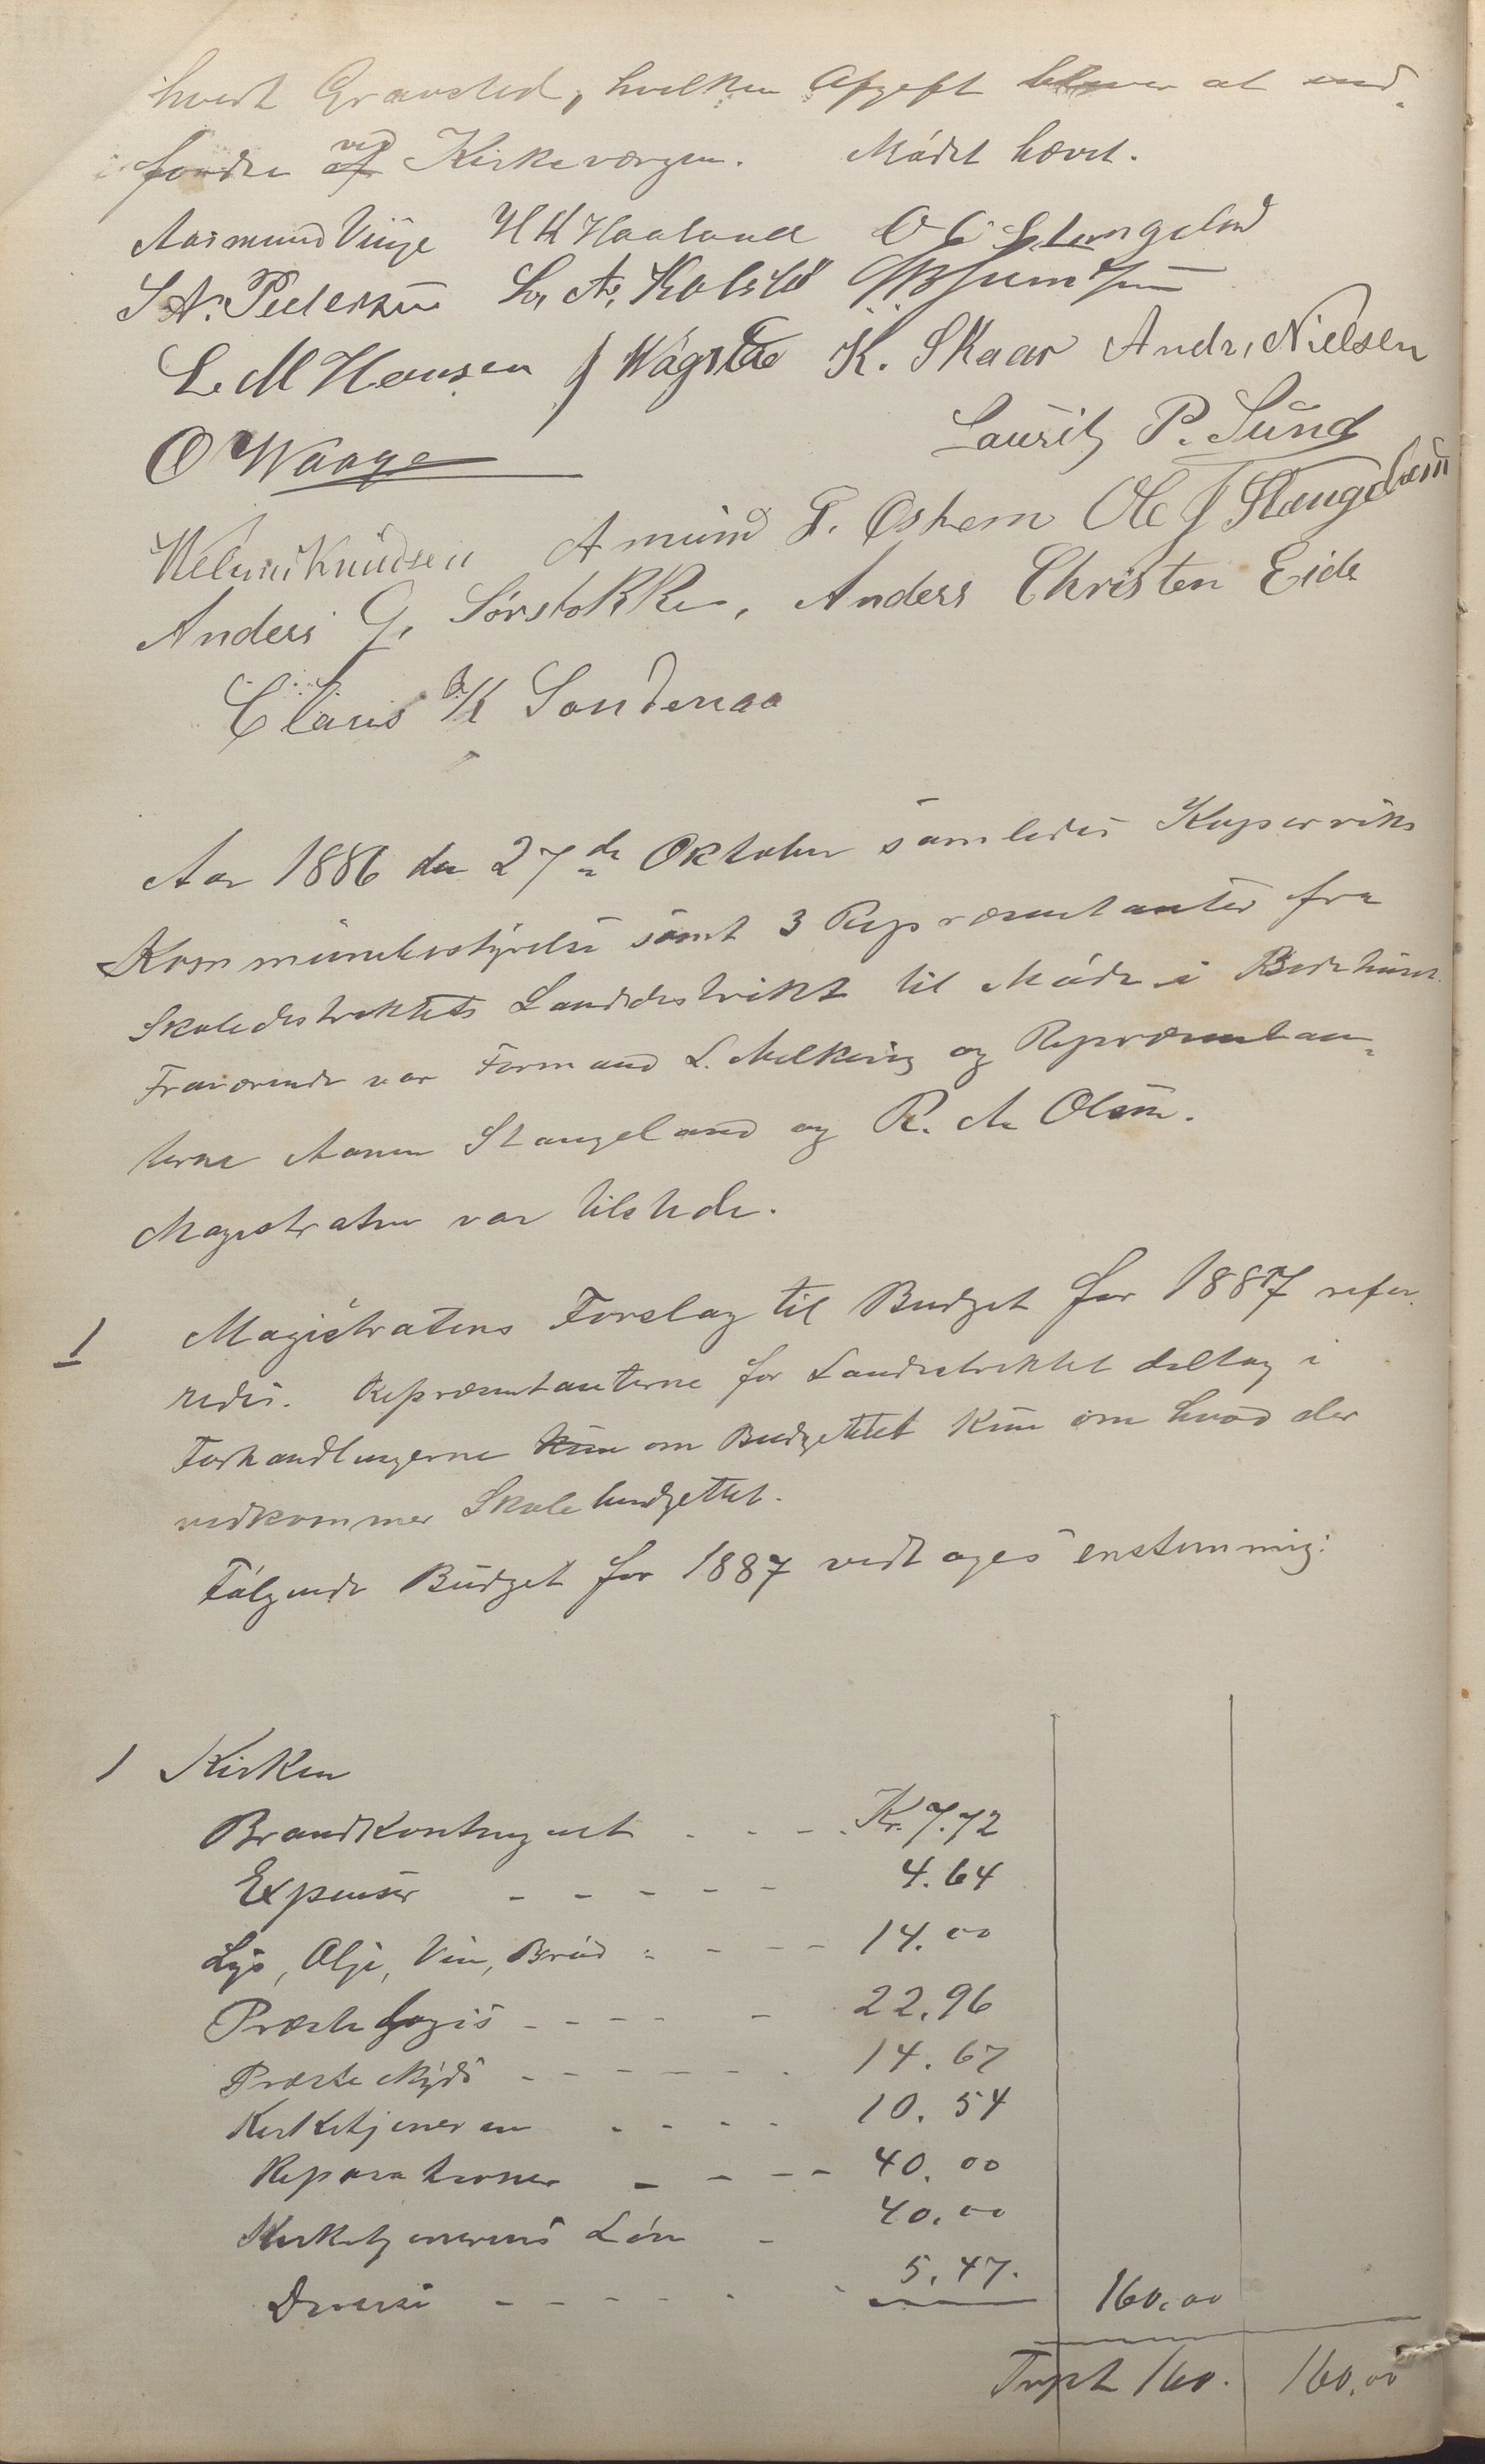 hvert Gravsted, hvilken Afgift bliver at ind-
fordre af ved Kirkeværgen. Mødet hævet.
Aasmund Vinje H H Haaland O C Stangeland
S A. Pedersen L. A. Kolstø
L. M Hansen J Wågstø K. Skaar Andr. Nielsen
O Waage Lauritz P. Sund
Knudsen Amund T. Oshem Ole J Stangeland
Anders G. Sørstokke, Anders Christen Eide
Claus K Sandenaa
Aar 1886 den 27de Oktober samledes Koperviks
Kommunebestyrelse samt 3 Repræsentanter fra
Skoledistriktets Landdistrikt til Møde i Bedehuset.
Fraværende var Formand L. Melking og Repræsentan-
terne Aanen Stangeland og R. M Olsen.
Magistraten var tilstede.
1 Magistratens Forslag til Budget for 1887 refe-
redes. Repræsentanterne for Landdistriktet deltog i
Forhandlingerne kun om Budgettet kun om hvad der
vedkommer Skolebudgettet.
Følgende Budget for 1887 vedtages enstemmig:
1 Kirken
Brandkontingent - - - Kr. 7.72
Expenser - - - - - 4.64
Lys, Olje, Vin, Brød - - - - 14.00
Præstelogis - - - - - 22.96
Præsteskyds - - - - - - 14.67
Kirketjeneren - - - - 10.54
Reparationer - - - - 40.00
Kirketjenerens Løn - 40.00
Diverse - - - - - - 5.47. 160.00
Trpt 160. 160.00